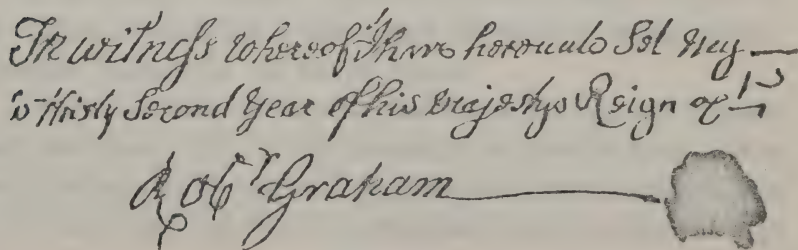 In witness whereof I have hereunto Set my
Thirty Second Year of his Majestys Reign
Robt Graham